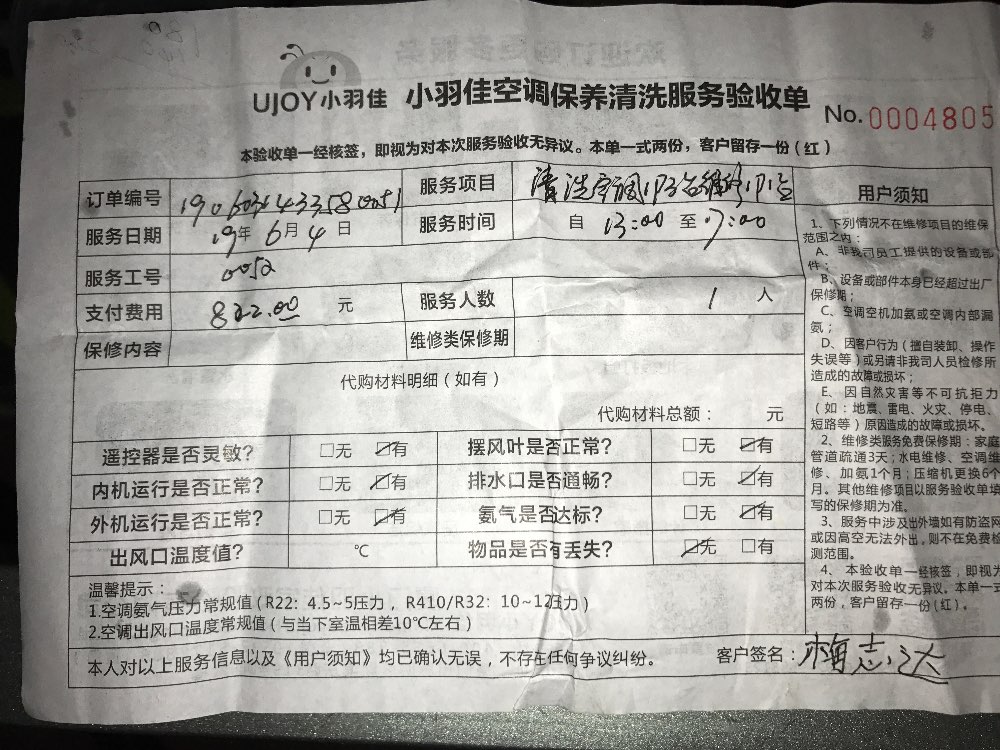 UJOY小羽佳 小羽佳空调保养清洗服务验收单
No. 0004805
本验收单一经核签，即视为对本次服务验收无异议。本单一式两份，客户留存一份（红）
订单编号
服务项目 清洗空调
服务日期 19年6月4日
服务时间 自 13:00 至 17:00
服务工号 0052
支付费用 822.00 元
服务人数 1 人
保修内容
维修类保修期
代购材料明细（如有）
代购材料总额： 元
遥控器是否灵敏？ □无 ☑有 摆风叶是否正常？ □无 ☑有
内机运行是否正常？ □无 ☑有 排水口是否通畅？ □无 ☑有
外机运行是否正常？ □无 ☑有 氨气是否达标？ □无 ☑有
出风口温度值？ ℃ 物品是否有丢失？ ☑无 □有
温馨提示：
1.空调氨气压力常规值（R22：4.5~5压力，R410/R32：10~12压力）
2.空调出风口温度常规值（与当下室温相差10℃左右）
本人对以上服务信息以及《用户须知》均已确认无误，不存在任何争议纠纷。
客户签名：梅志达
用户须知
1、下列情况不在维修项目的维保
范围之内：
A、非我司员工提供的设备或部
件；
B、设备或部件本身已经超过出厂
保修期；
C、空调空机加氨或空调内部漏
氨；
D、因客户行为（擅自装卸、操作
失误等）或另请非我司人员检修所
造成的故障或损坏；
E、因自然灾害等不可抗拒力
（如：地震、雷电、火灾、停电、
短路等）原因造成的故障或损坏。
2、维修类服务免费保修期：家庭
管道疏通3天；水电维修、空调维
修、加氨1个月；压缩机更换6个
月。其他维修项目以服务验收单填
写的保修期为准。
3、服务中涉及出外墙如有防盗网
或因高空无法外出，则不在免费检
测范围。
4、本验收单一经核签，即视为
对本次服务验收无异议。本单一式
两份，客户留存一份（红）。